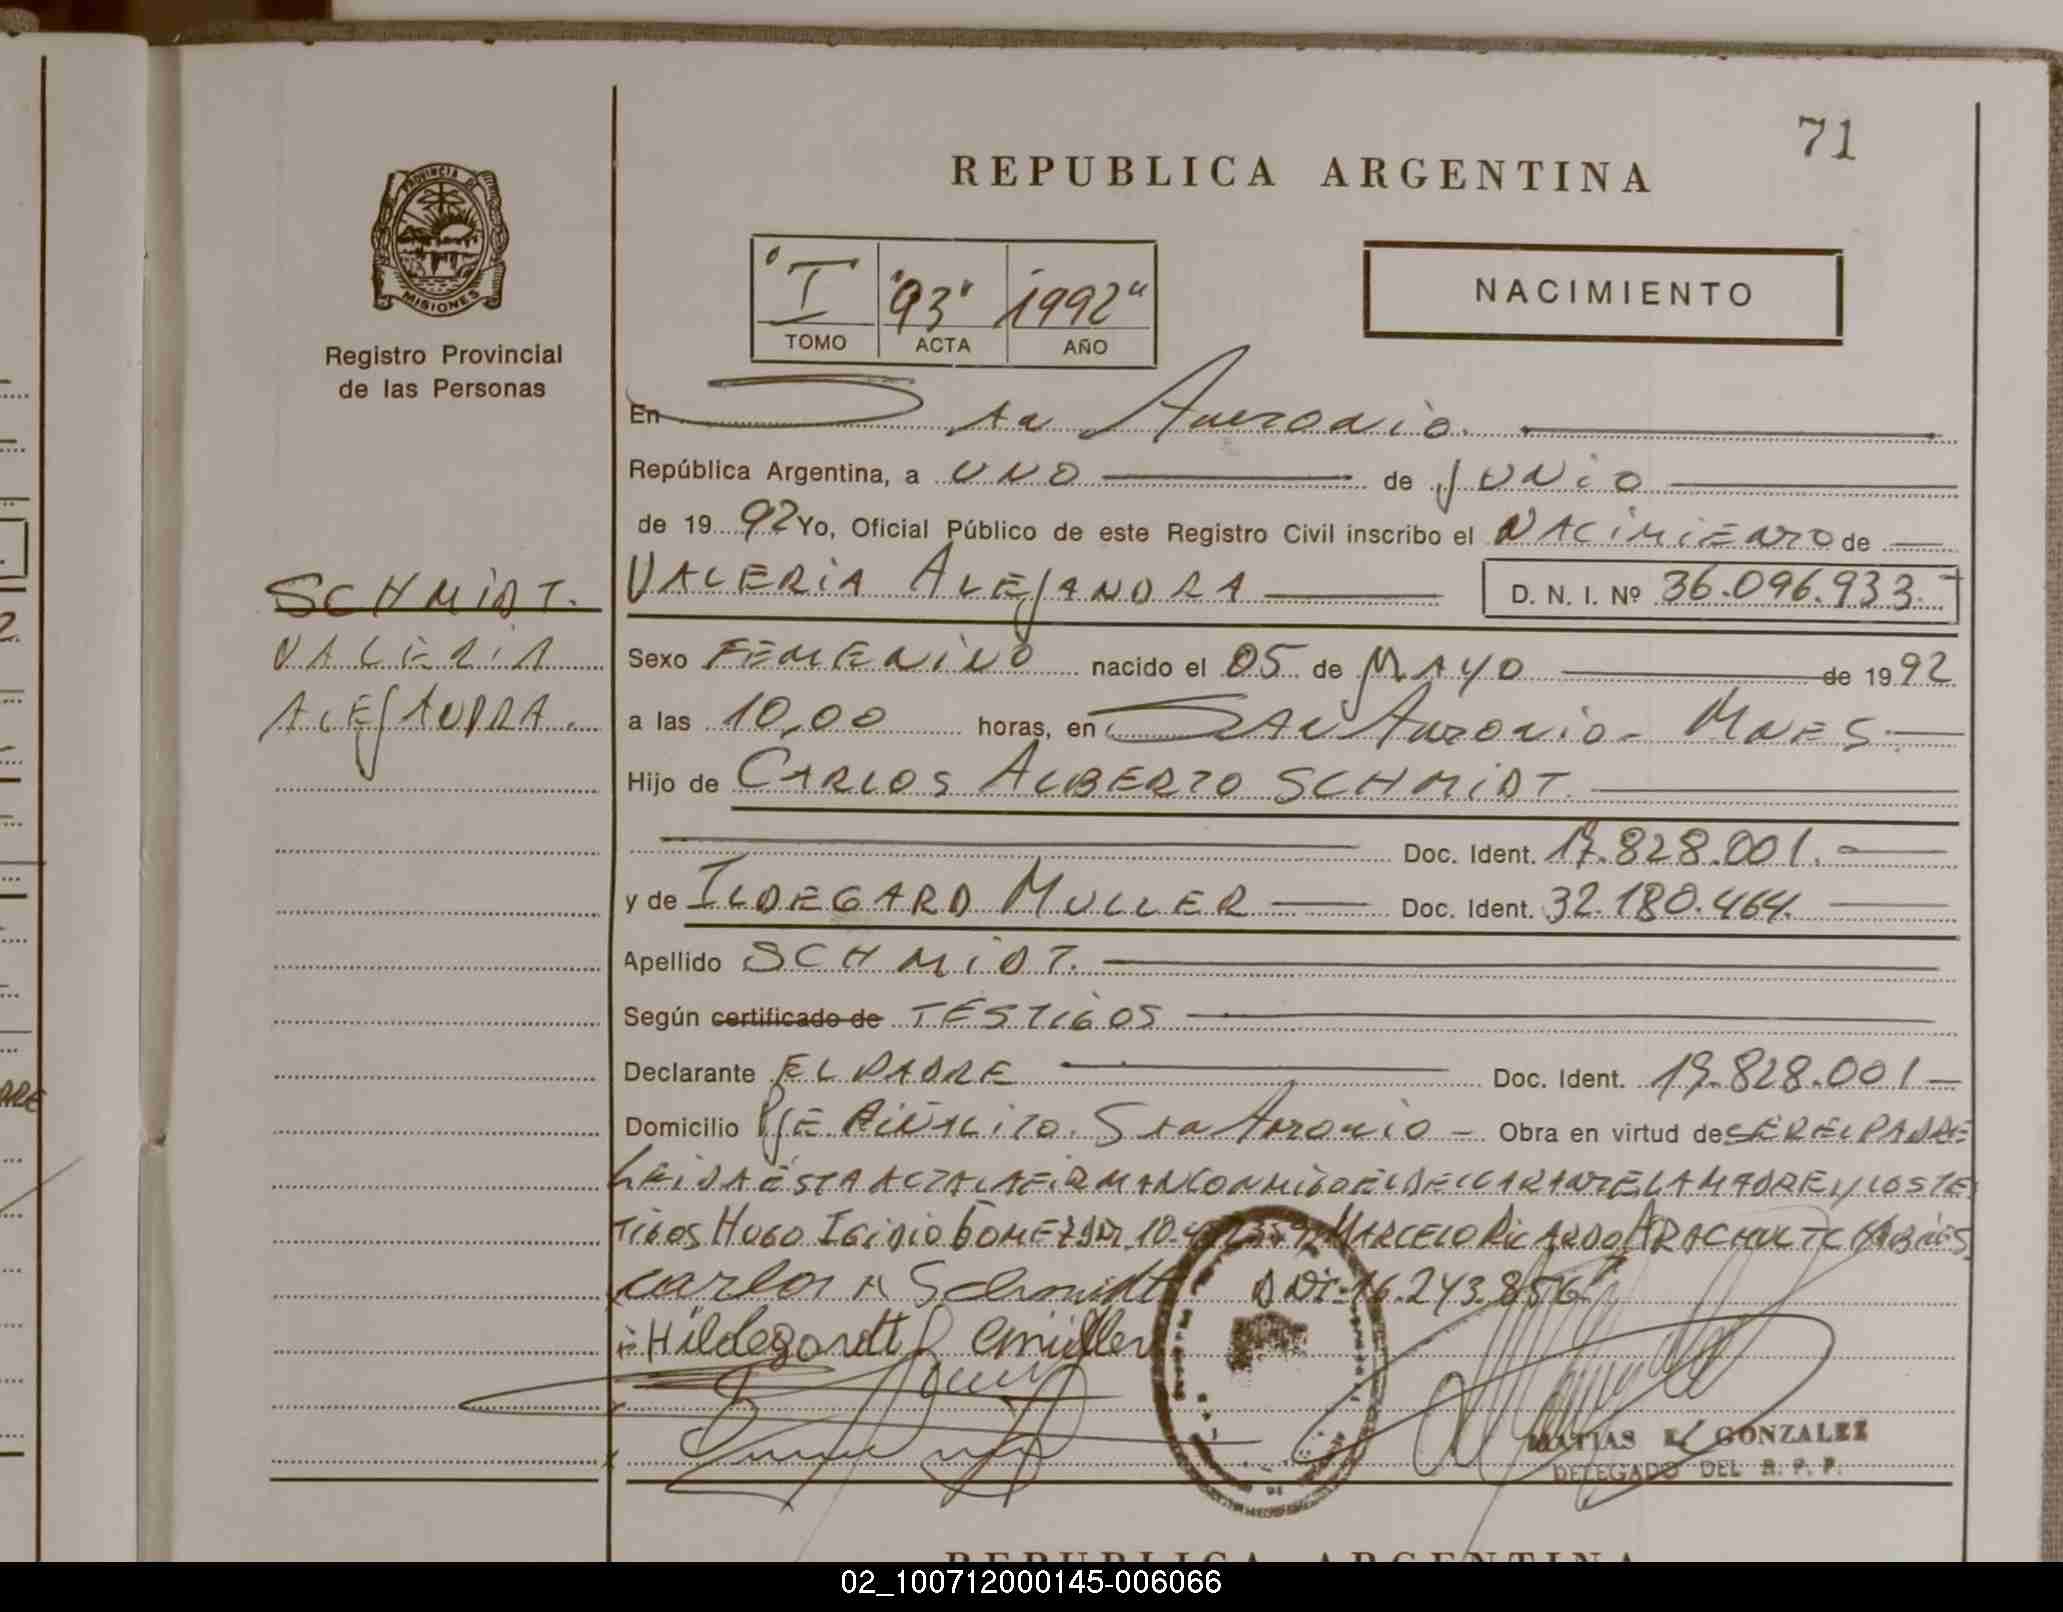 71
REPUBLICA ARGENTINA
PROVINCIA DE
MISIONES
Registro Provincial
de las Personas
"I" "93" 1992"
TOMO ACTA AÑO
NACIMIENTO
En San Antonio.
República Argentina, a UNO de JUNIO
de 19 92 Yo, Oficial Público de este Registro Civil inscribo el NACIMIENTO de
SCHMIDT.
VALERIA
ALEJANDRA.
VALERIA ALEJANDRA D. N. I. Nº 36.096.933.-
Sexo FEMENINO nacido el 05 de MAYO de 19 92
a las 10,00 horas, en San Antonio - Mnes
Hijo de CARLOS ALBERTO SCHMIDT.
Doc. Ident. 17.828.001.
y de ILDEGARD MULLER Doc. Ident. 32.180.464.
Apellido SCHMIDT.
Según certificado de TESTIGOS
Declarante EL PADRE Doc. Ident. 17.828.001
Domicilio Pje San Antonio - Obra en virtud de SER EL PADRE
LEIDA ESTA ACTA LA FIRMAN CONMIGO EL DECLARANTE LA MADRE Y LOS TE
TIGOS HUGO IGIDIO GOMEZ MARCELO RICARDO
carlos A Schmidt DNI-16.243.856
Hildegardt Müller
MATIAS GONZALEZ
DELEGADO DEL R. P. P.
REPUBLICA ARGENTINA
02_100712000145-006066